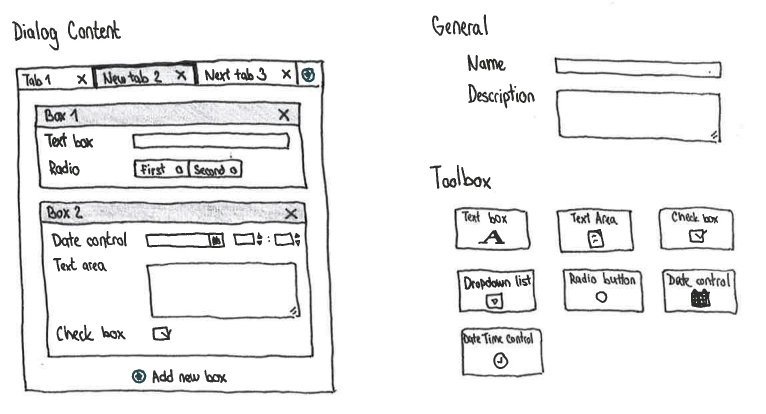 Dialog Content
Tab 1 X New tab 2 X Next tab 3 X
Box 1 X
Text box
Radio First Second
Box 2 X
Date control :
Text area
Check box
Add new box
General
Name
Description
Toolbox
Text box Text Area Check box
A
Dropdown list Radio button Date control
Date Time Control